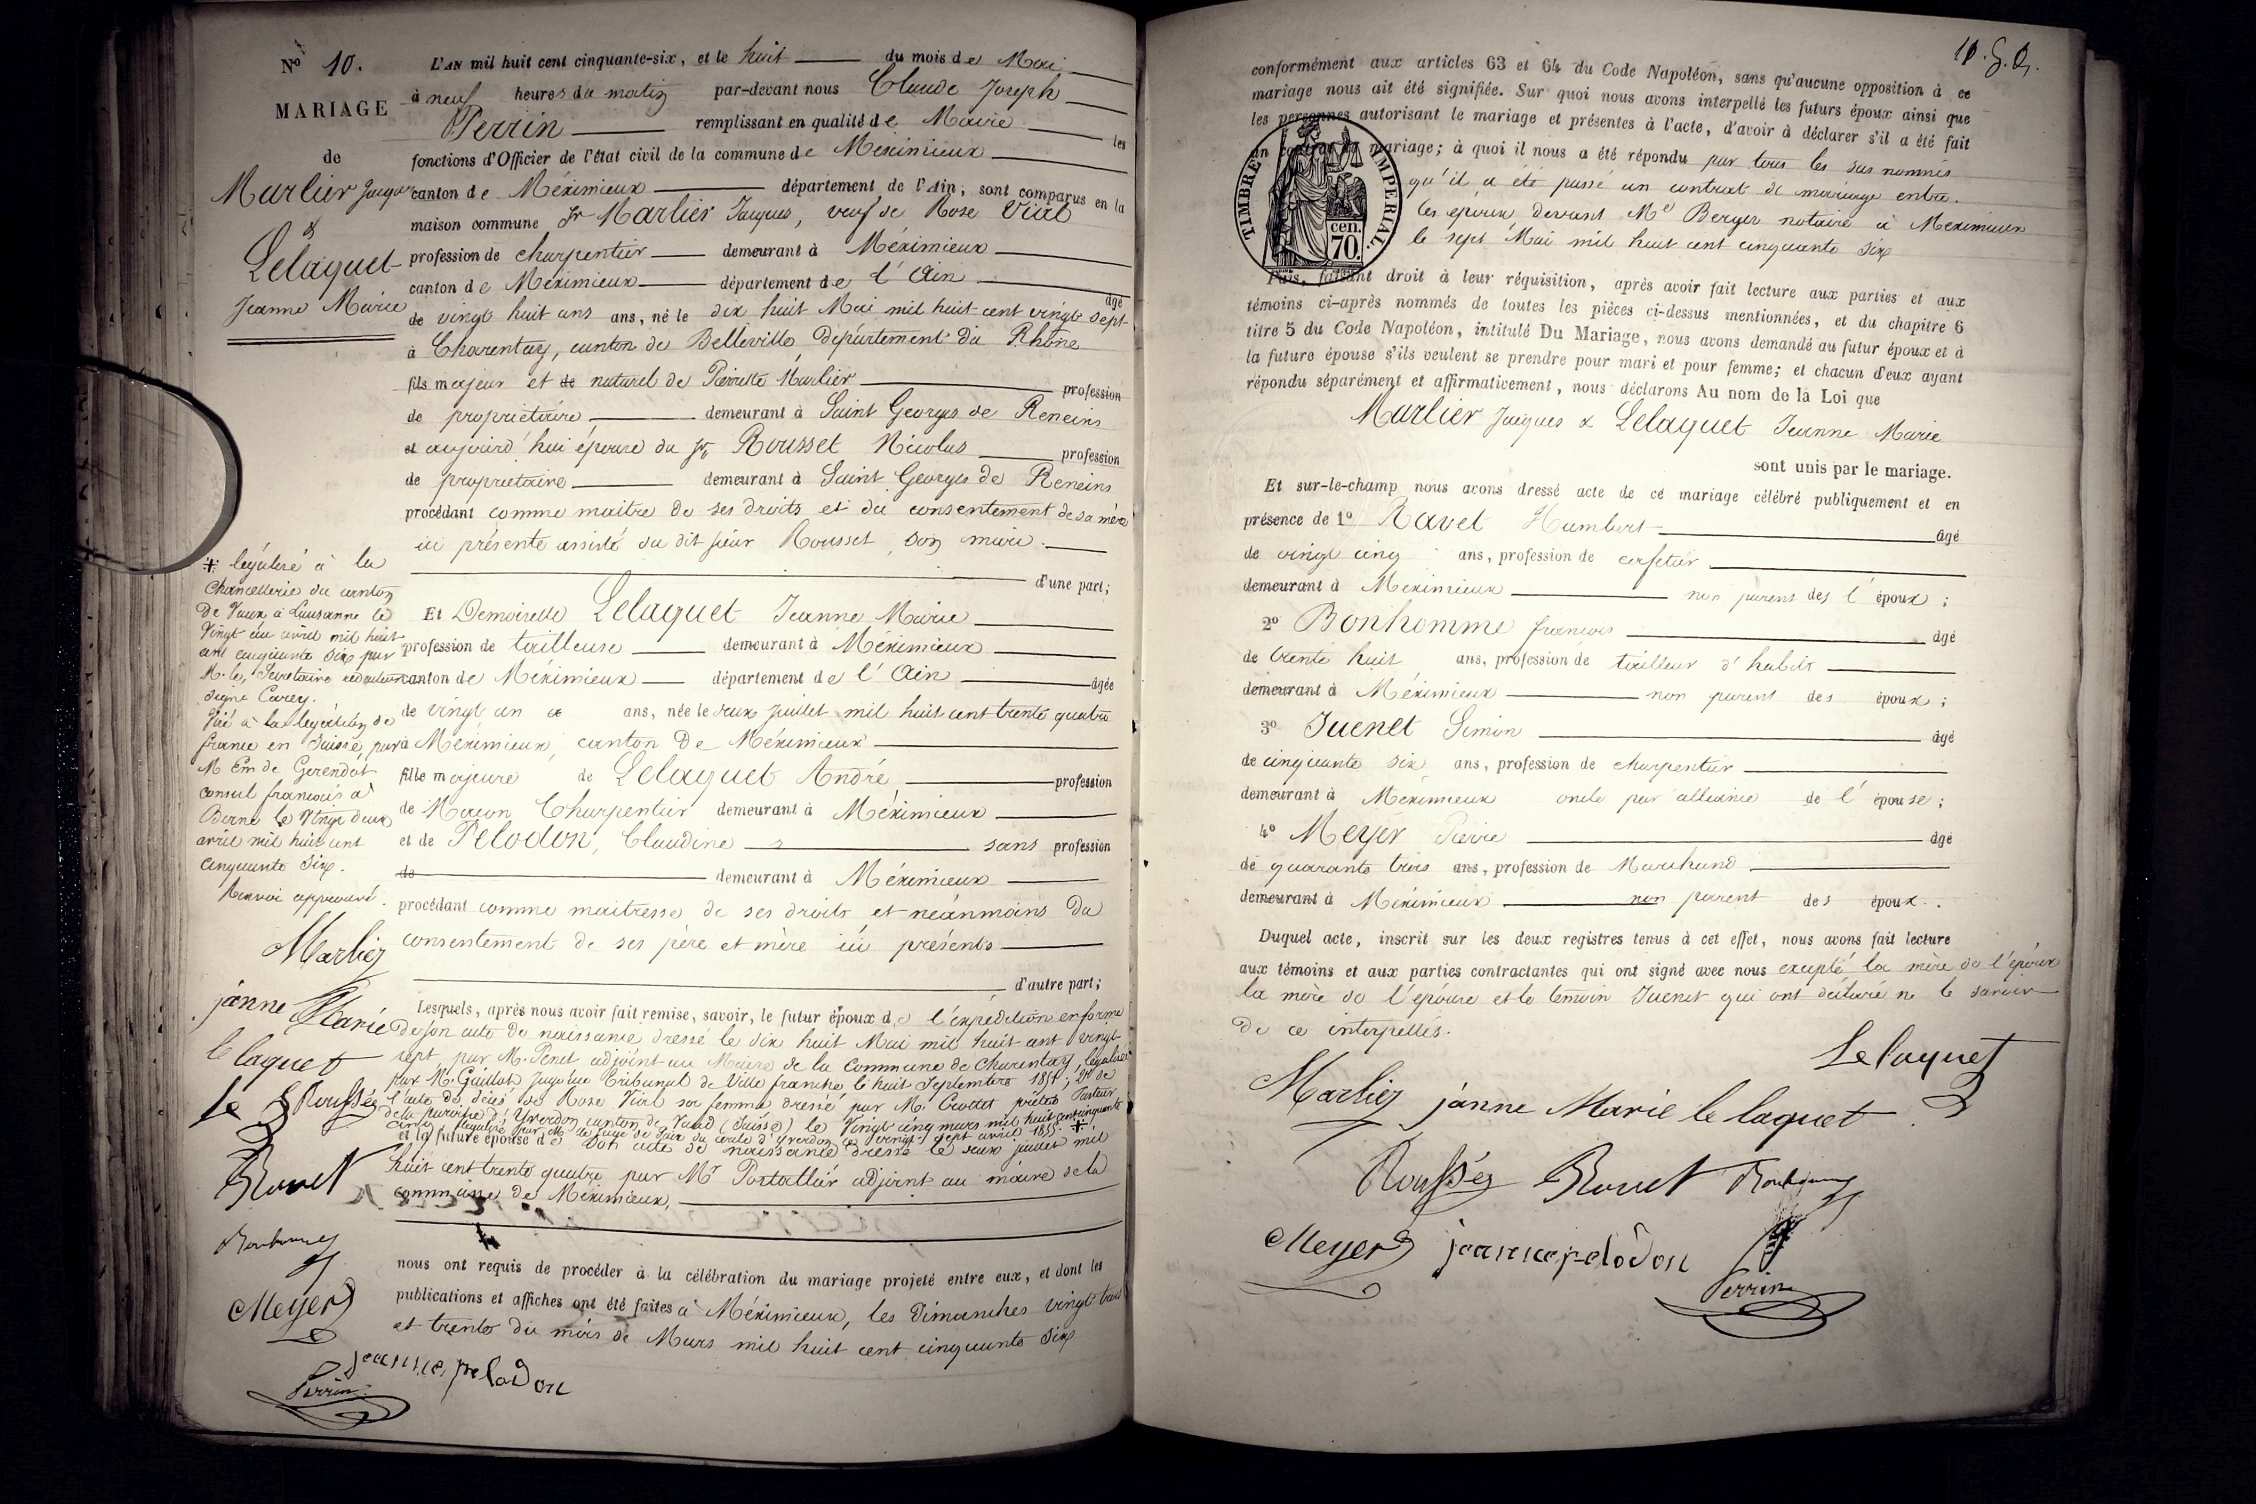 N° 10.
MARIAGE
de
Marlier Jacques
&
Lelaquet
Jeanne Marie
L'AN mil huit cent cinquante-six, et le huit du mois de Mai
à neuf heures du matin par-devant nous Claude Joseph
Perrin remplissant en qualité de Maire les
fonctions d'Officier de l'état civil de la commune de Meximieux
canton de Méximieux département de l'Ain, sont comparus en la
maison commune Sr Marlier Jacques, veuf de Rose Viret
profession de charpentier demeurant à Méximieux
canton de Méximieux département de l'Ain âgé
de vingt huit ans ans, né le dix huit Mai mil huit cent vingt sept
à Charentay, canton de Belleville département du Rhône
fils majeur et de naturel de Pierrette Marlier profession
de propriétaire demeurant à Saint Georges de Reneins
et aujourd'hui épouse du Sr Rousset Nicolas profession
de propriétaire demeurant à Saint Georges de Reneins
procédant comme maitre de ses droits et du consentement de sa mère
ici présente assisté du dit sieur Rousset son mari.
d'une part;
Et Demoiselle Lelaquet Jeanne Marie
profession de tailleuse demeurant à Méximieux
canton de Méximieux département de l'Ain âgée
de vingt un ans, née le deux juillet mil huit cent trente quatre
à Méximieux, canton de Méximieux
fille majeure de Lelaquet André profession
de Maçon Charpentier demeurant à Méximieux
et de Pelodon, Claudine sans profession
de demeurant à Méximieux
procédant comme maitresse de ses droits et néanmoins du
consentement de ses père et mère ici présents
d'autre part;
Lesquels, après nous avoir fait remise, savoir, le futur époux de l'expédition en forme
de son acte de naissance dressé le dix huit Mai mil huit cent vingt
sept par M. Penet adjoint au Maire de la Commune de Charentay, légalisé
par M. Gaillot Juge au Tribunal de Ville franche le huit Septembre 1851; 2° de
l'acte de décès de Rose Viret sa femme dressé par M. Crottet prètre Pasteur
de la paroisse d'Yverdon canton de Vaud (Suisse) le vingt cinq mars mil huit cent cinquante
cinq légalisé par M. le juge de paix du cercle d'Yverdon le vingt sept avril 1855. ‡
et la future épouse de son acte de naissance dressé le deux juillet mil
huit cent trente quatre par Mr Portallier adjoint au maire de la
commune de Méximieux,
nous ont requis de procéder à la célébration du mariage projeté entre eux, et dont les
publications et affiches ont été faites à Méximieux, les Dimanches vingt trois
et trente du mois de Mars mil huit cent cinquante six
‡ légalisé à la
Chancellerie du canton
de Vaux à Lausanne le
vingt un avril mil huit
cent cinquante six par
M. le Secretaire rédacteur
signé Carey.
Visé à la légation de
france en Suisse, par
M Em de Gerendot
consul français à
Berne le vingt deux
avril mil huit cent
cinquante six.
Renvoi approuvé.
Marlier
jànne Marie
le laquet
Le Roussés
Ravet
Bonhomme
Meyer
jeanne pelodon
Perrin
10. G. D.
conformément aux articles 63 et 64 du Code Napoléon, sans qu'aucune opposition à ce
mariage nous ait été signifiée. Sur quoi nous avons interpellé les futurs époux ainsi que
les personnes autorisant le mariage et présentes à l'acte, d'avoir à déclarer s'il a été fait
un contrat de mariage; à quoi il nous a été répondu par tous les sus nommés
qu'il a été passé un contrat de mariage entre
les époux devant Me Berger notaire à Meximieux
le sept Mai mil huit cent cinquante six
TIMBRE IMPERIAL.
70 cen.
Puis, faisant droit à leur réquisition, après avoir fait lecture aux parties et aux
témoins ci-après nommés de toutes les pièces ci-dessus mentionnées, et du chapitre 6
titre 5 du Code Napoléon, intitulé Du Mariage, nous avons demandé au futur époux et à
la future épouse s'ils veulent se prendre pour mari et pour femme; et chacun d'eux ayant
répondu séparément et affirmativement, nous déclarons Au nom de la Loi que
Marlier Jacques & Lelaquet Jeanne Marie
sont unis par le mariage.
Et sur-le-champ nous avons dressé acte de cé mariage célébré publiquement et en
présence de 1° Ravet Humbert âgé
de vingt cinq ans, profession de cafetier
demeurant à Meximieux non parent des l'époux;
2° Bonhomme françois âgé
de trente huit ans, profession de tailleur d'habits
demeurant à Méximieux non parent des époux;
3° Juenet Simon âgé
de cinquante six ans, profession de charpentier
demeurant à Méximieux oncle par alliance de l'épouse;
4° Meyer Pierre âgé
de quarante trois ans, profession de Marchand
demeurant à Méximieux non parent des époux.
Duquel acte, inscrit sur les deux registres tenus à cet effet, nous avons fait lecture
aux témoins et aux parties contractantes qui ont signé avec nous excepté la mère de l'époux
la mère de l'épouse et le témoin Juenet qui ont déclaré ne le savoir
de ce interpellés.
Le laquet
Marlier jànne Marie le laquet
Roussés Ravet Bonhomme
Meyer jeanne pelodon
Perrin